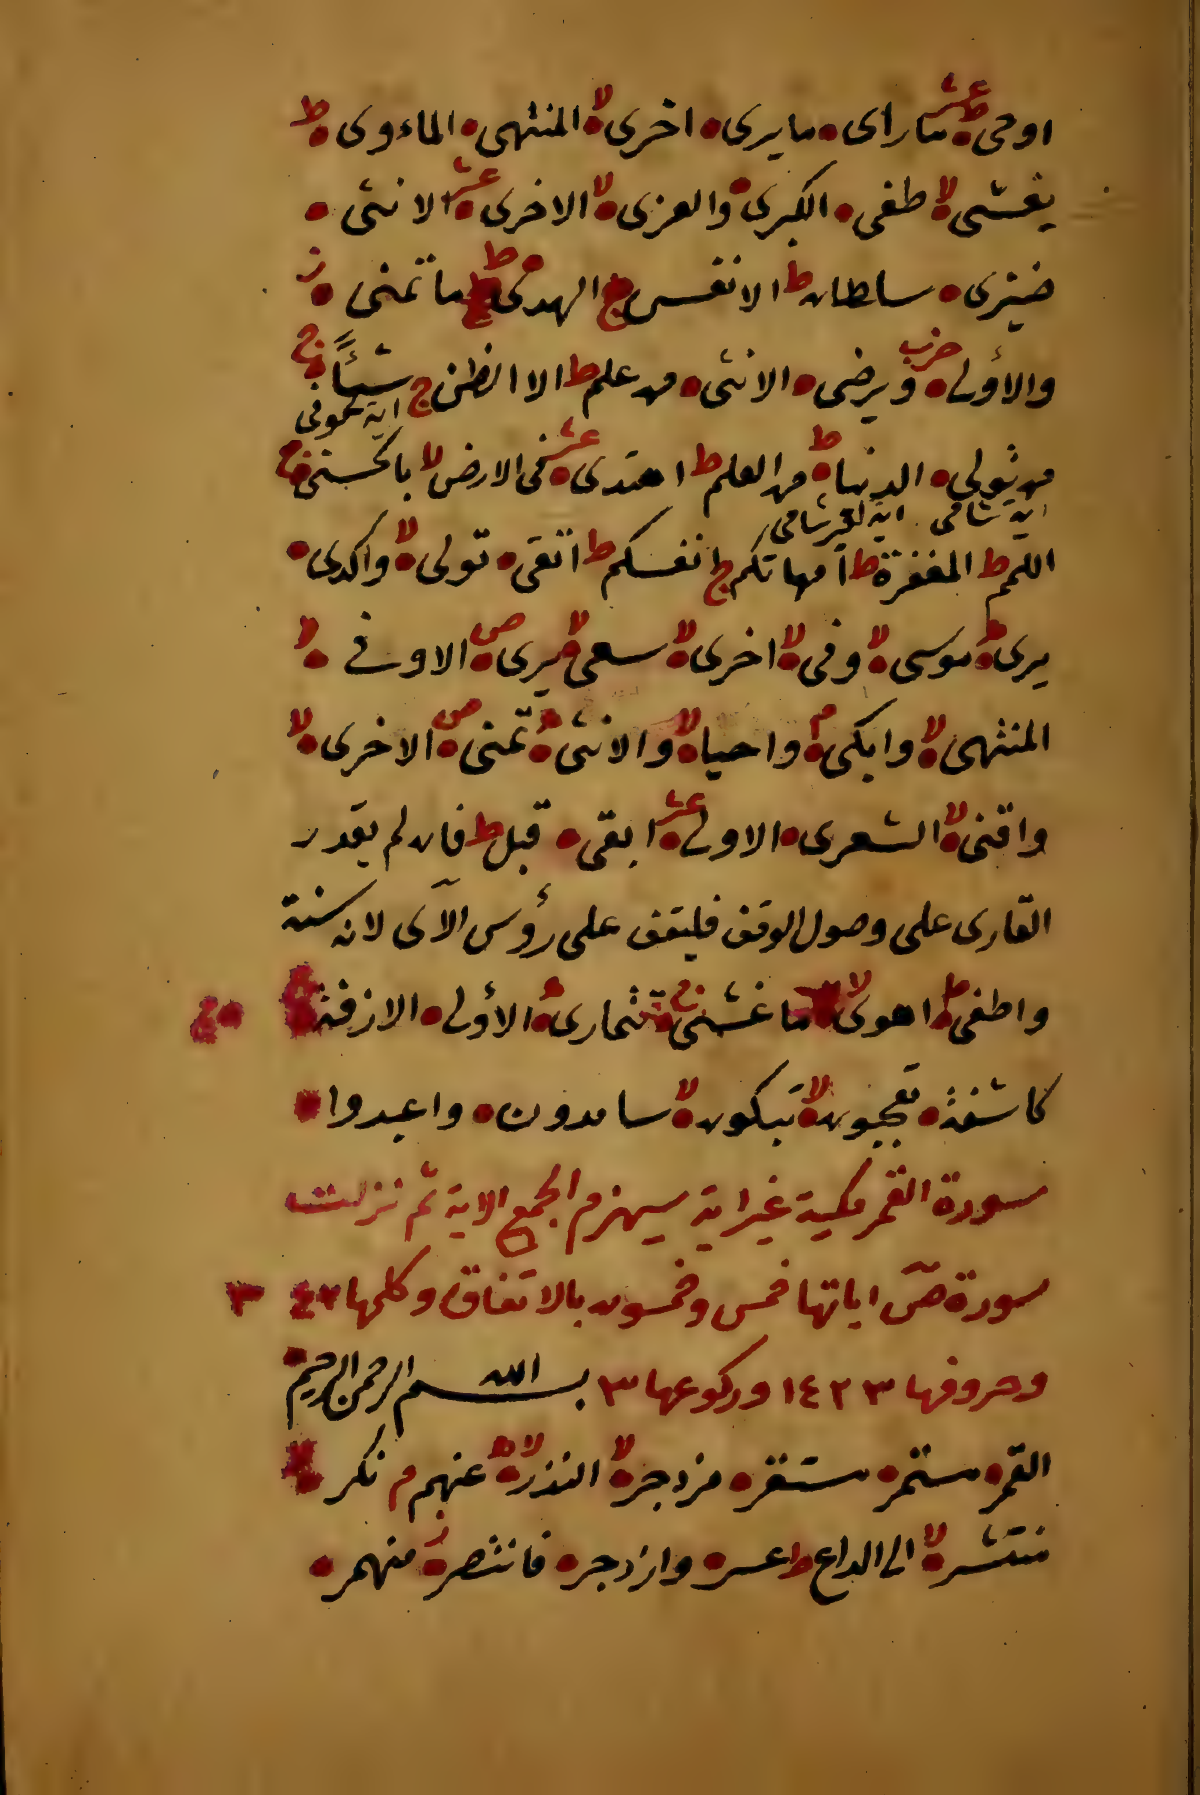 اوحى ط عشـ ما راى • ما يرى • اخرى لا المنتهى • الماءوى ط
يغشى لا طغى • الكبرى • والعزى لا الاخرى عشـ الانثى •
ضيزى • سلطان ط الانفس ج الهدى ط ما تمنى ز
والأولى حزب ويرضى • الانثى • من علم ط الا الظن ج شيئاً ج
اية كوفى
من تولى • الدنيا ط من العلم ط اهتدى عشـ فى الارض لا بالحسنى ج
اية شامى اية لغير شامى
اللمم ط المغفرة ط امهاتكم ج انفسكم ط اتقى • تولى لا واكدى •
يرى ط موسى لا وفى لا اخرى لا سعى لا يرى ص الاوفى لا
المنتهى لا وابكى م واحيا لا والانثى • تمنى ص الاخرى لا
واقنى لا الشعرى • الاولى عشـ ابقى • قبل ط فان لم يقدر
القارى على وصول الوقف فليقف على رؤس الآى لانه سنة
واطغى ط اهوى لا ما غشى ج تتمارى • الأولى • الازفة ج
كاشفة • تعجبون لا تبكون لا سامدون • واعبدوا •
سورة القمر مكية غير اية سيهزم الجمع الاية ثم نزلت
سورة صٓ اياتها خمس وخمسون بالاتفاق وكلمها ٣٤٢
وحروفها ١٤٢٣ وركوعها ٣ بسم الله الرحمن الرحيم
القمر • مستمر • مستقر • مزدجر لا النذر لا عنهم م نكر لا
منتشر لا الى الداع ط عسر • وازدجر • فانتصر ز منهمر •